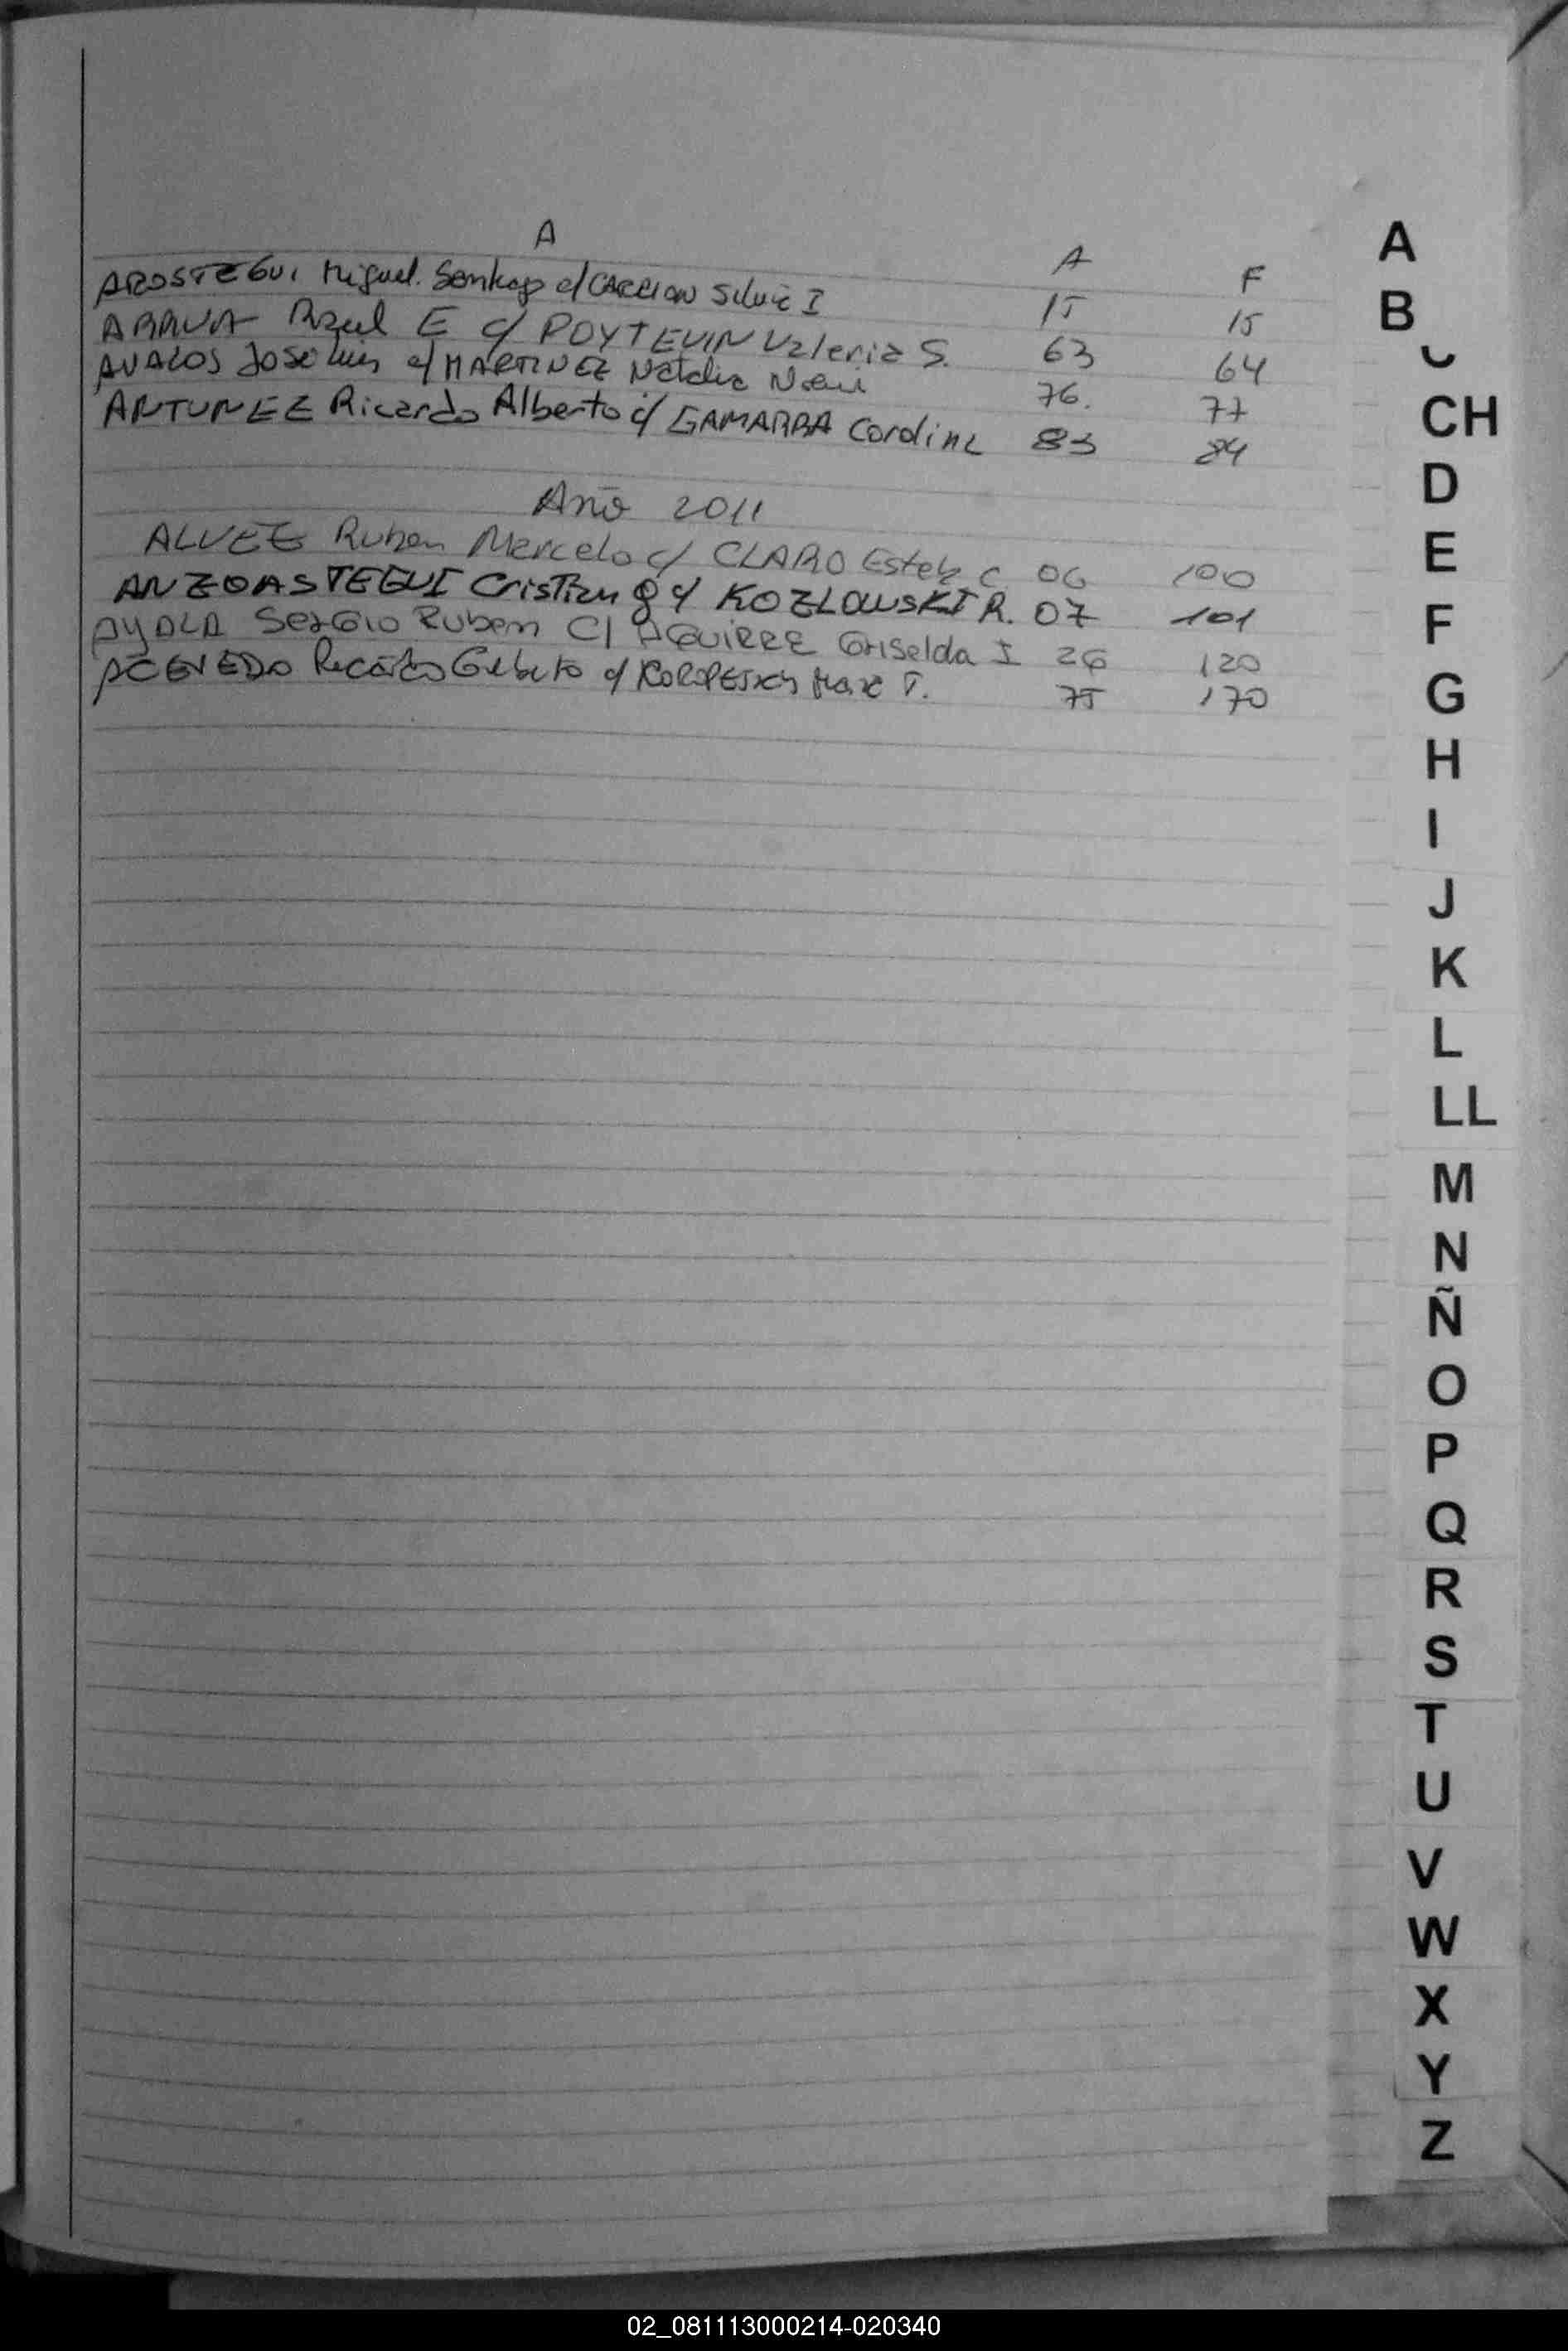 A
A F
AROSTEGUI Miguel Santiago c/ CARRION Silvia I 15 15
ARRUA Raul E c/ POYTEVIN Valeria S. 63 64
AVALOS Jose Luis c/ MARTINEZ Natalia Noemi 76. 77
ANTUNEZ Ricardo Alberto c/ GAMARRA Carolina 83 84
Año 2011
ALVEZ Ruben Marcelo c/ CLARO Estela C 06 100
ANZOASTEGUI Cristian c/ KOZLOWSKI R. 07 101
AYALA Sergio Ruben C/ AGUIRRE Griselda I 26 120
ACEVEDO Ricardo Gilberto c/ T. 75 170
A
B
CH
D
E
F
G
H
I
J
K
L
LL
M
N
Ñ
O
P
Q
R
S
T
U
V
W
X
Y
Z
02_081113000214-020340